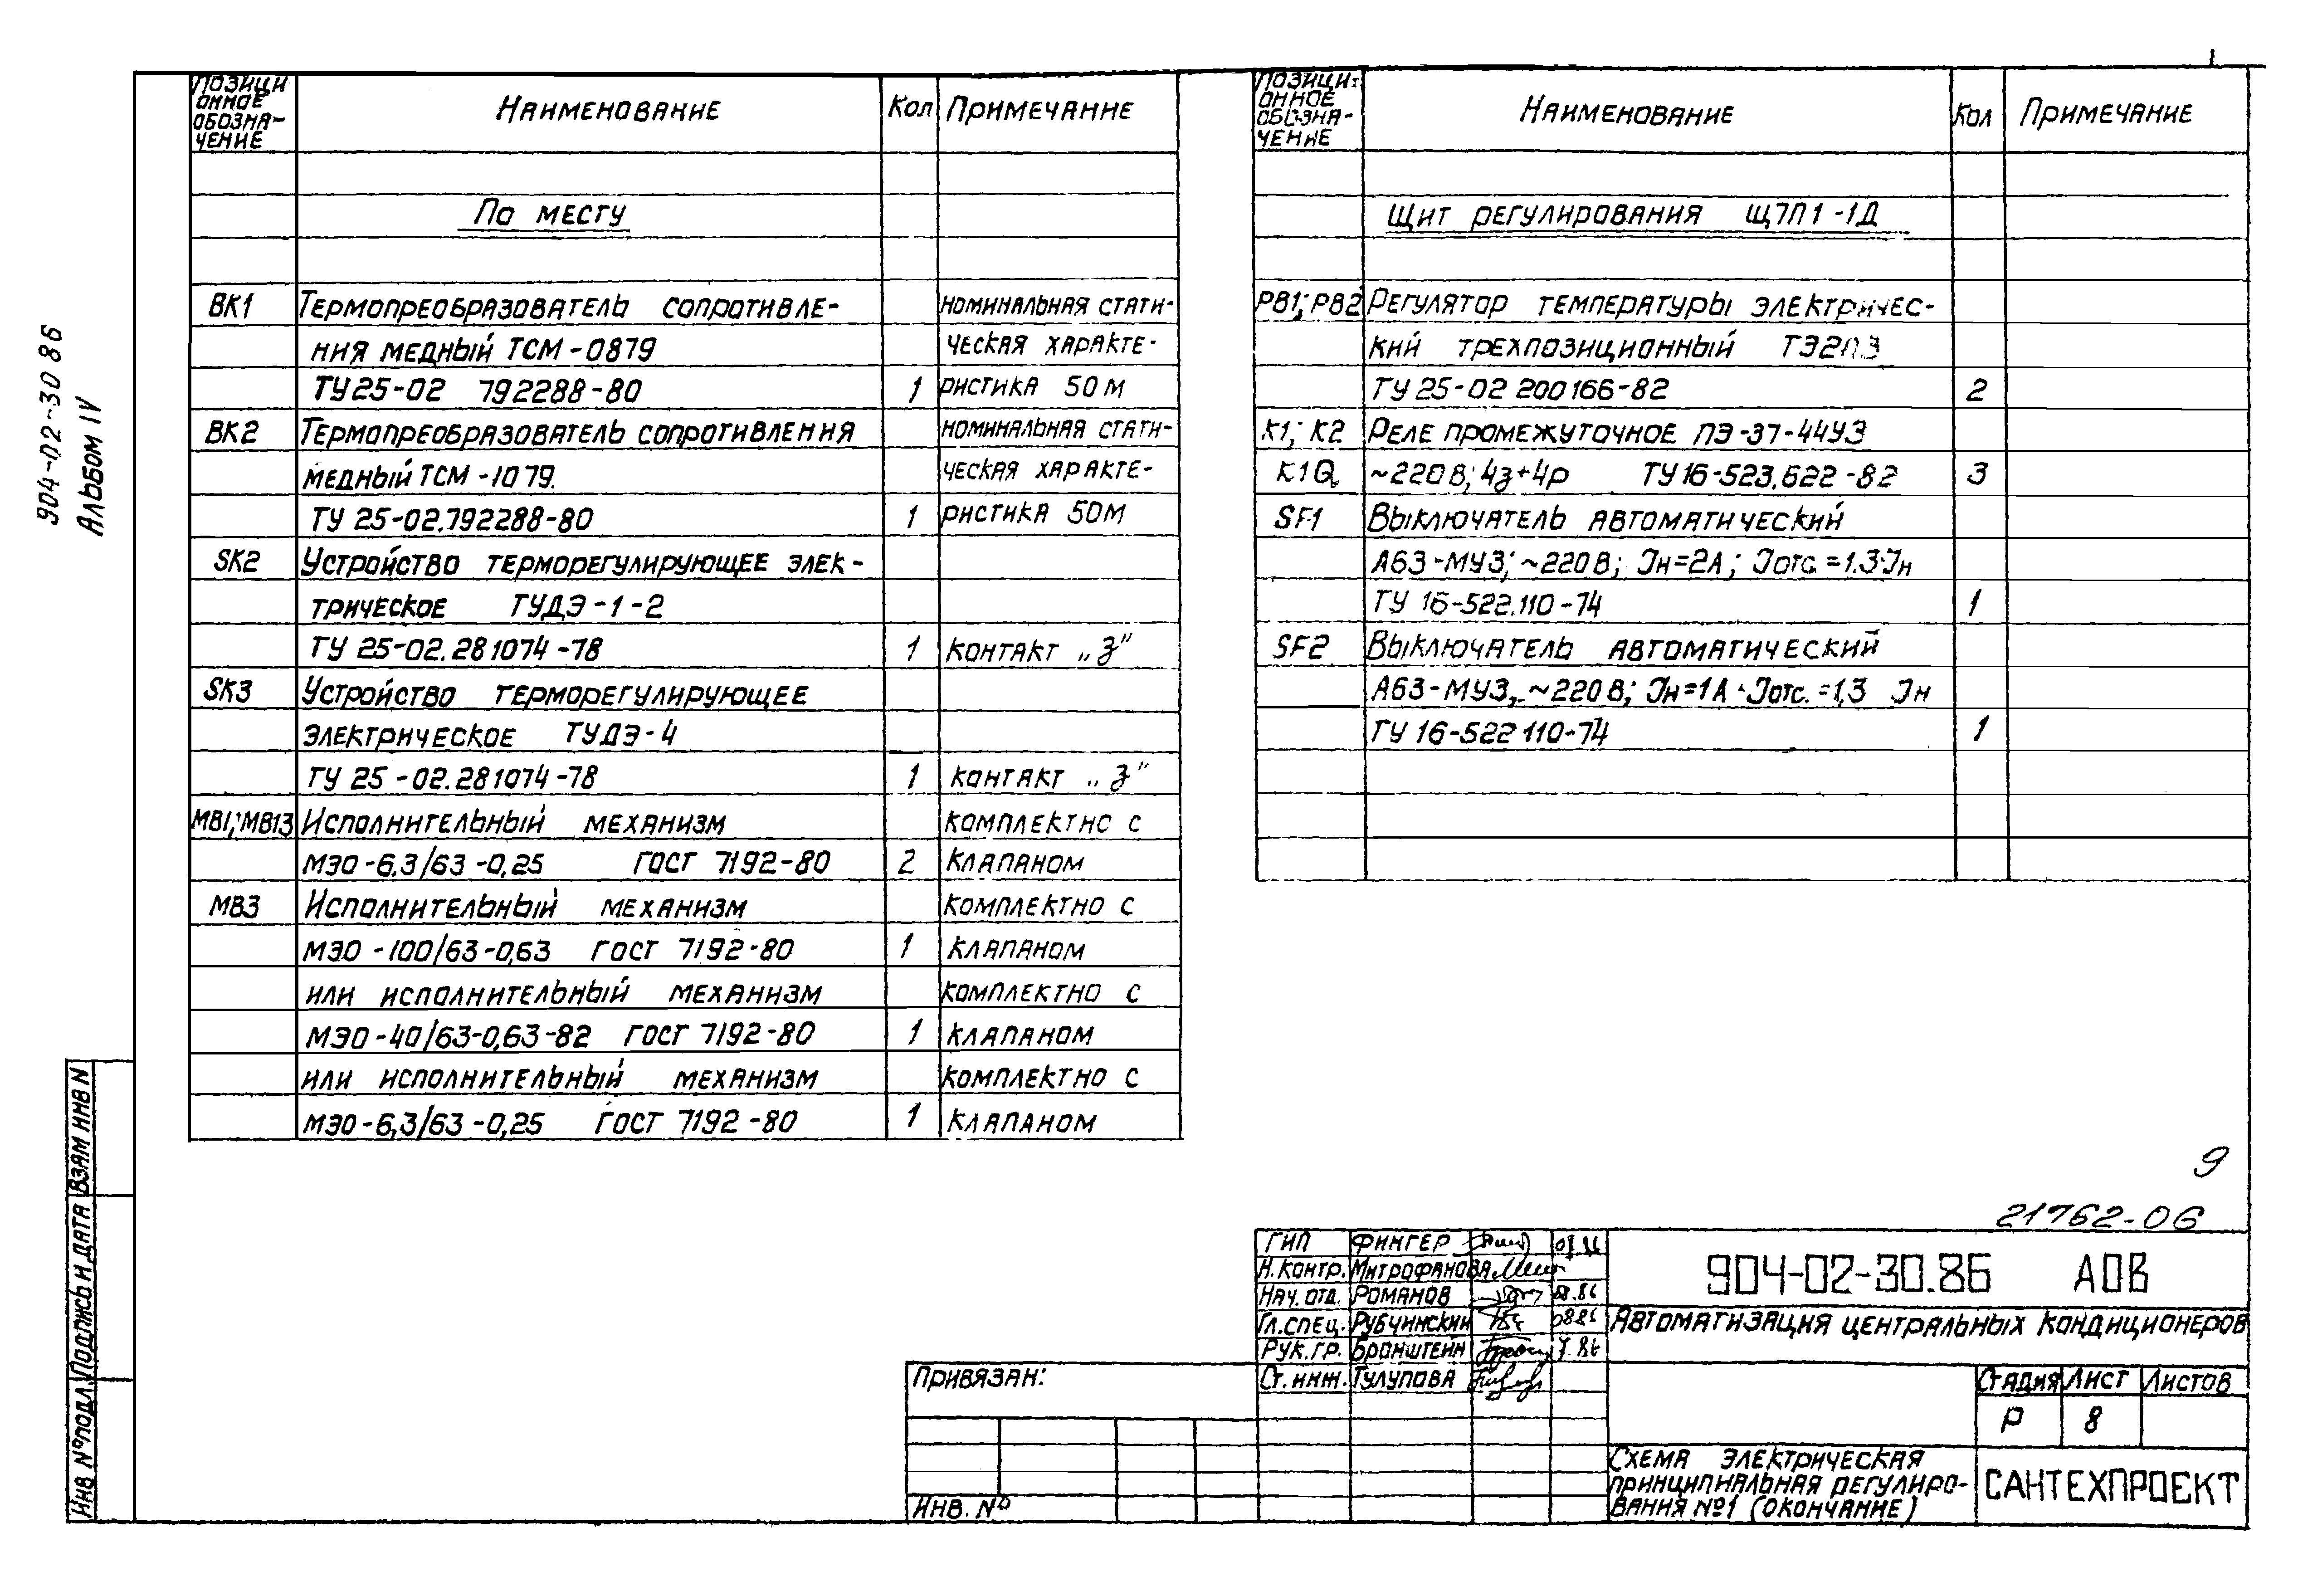 904-02-30 86
Альбом IV
Позици
онное
обозна-
чение
Наименование
Кол
Примечание
По месту
ВК1 Термопреобразователь сопротивле- номинальная стати-
ния медный ТСМ-0879 ческая характе-
ТУ25-02 792288-80 1 ристика 50М
ВК2 Термопреобразователь сопротивления номинальная стати-
медный ТСМ-1079. ческая характе-
ТУ 25-02.792288-80 1 ристика 50М
SK2 Устройство терморегулирующее элек-
трическое ТУДЭ-1-2
ТУ 25-02.281074-78 1 контакт „З"
SK3 Устройство терморегулирующее
электрическое ТУДЭ-4
ТУ 25-02.281074-78 1 контакт „З"
МВ1; МВ13 Исполнительный механизм комплектно с
МЭО-6,3/63-0,25 ГОСТ 7192-80 2 клапаном
МВ3 Исполнительный механизм комплектно с
МЭО-100/63-0,63 ГОСТ 7192-80 1 клапаном
или исполнительный механизм комплектно с
МЭО-40/63-0,63-82 ГОСТ 7192-80 1 клапаном
или исполнительный механизм комплектно с
МЭО-6,3/63-0,25 ГОСТ 7192-80 1 клапаном
Позици-
онное
обозна-
чение
Наименование
Кол
Примечание
Щит регулирования Щ7П1-1Д
РВ1; РВ2 Регулятор температуры электричес-
кий трехпозиционный ТЭ2П3
ТУ 25-02 200166-82 2
К1; К2 Реле промежуточное ПЭ-37-44У3
К1Q ~220В; 4з+4р ТУ16-523.622-82 3
SF1 Выключатель автоматический
А63-МУ3; ~220В; Iн=2А; Iотс.=1.3·Iн
ТУ 16-522.110-74 1
SF2 Выключатель автоматический
А63-МУ3, ~220В; Iн=1А Iотс.=1,3 Iн
ТУ 16-522 110-74 1
9
21762-06
ГИП Фингер
Н.контр. Митрофанова
Нач. отд. Романов 08.86
Гл.спец. Рубчинский 0886
Рук.гр. Бронштейн
Ст. инж. Тулупова
904-02-30.86 АОВ
Автоматизация центральных кондиционеров
Стадия Лист Листов
Р 8
Схема электрическая
принципиальная регулиро-
вания №1 (окончание)
САНТЕХПРОЕКТ
Привязан:
Инв. №
Взам инв N
Подпись и дата
Инв № подл.